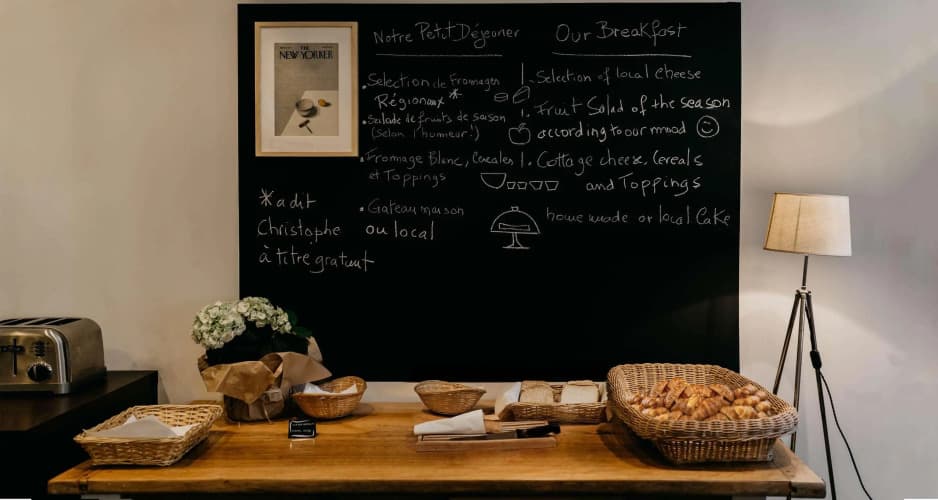 THE
NEW YORKER
Notre Petit Déjeuner
. Selection de Fromages
Régionaux *
. Salade de fruits de saison
(selon l'humeur!)
. Fromage Blanc, Cereales
et Toppings
. Gateau maison
ou local
* a dit
Christophe
à titre gratuit
Our Breakfast
. Selection of local Cheese
. Fruit Salad of the season
according to our mood
. Cottage cheese, Cereals
and Toppings
home made or local Cake